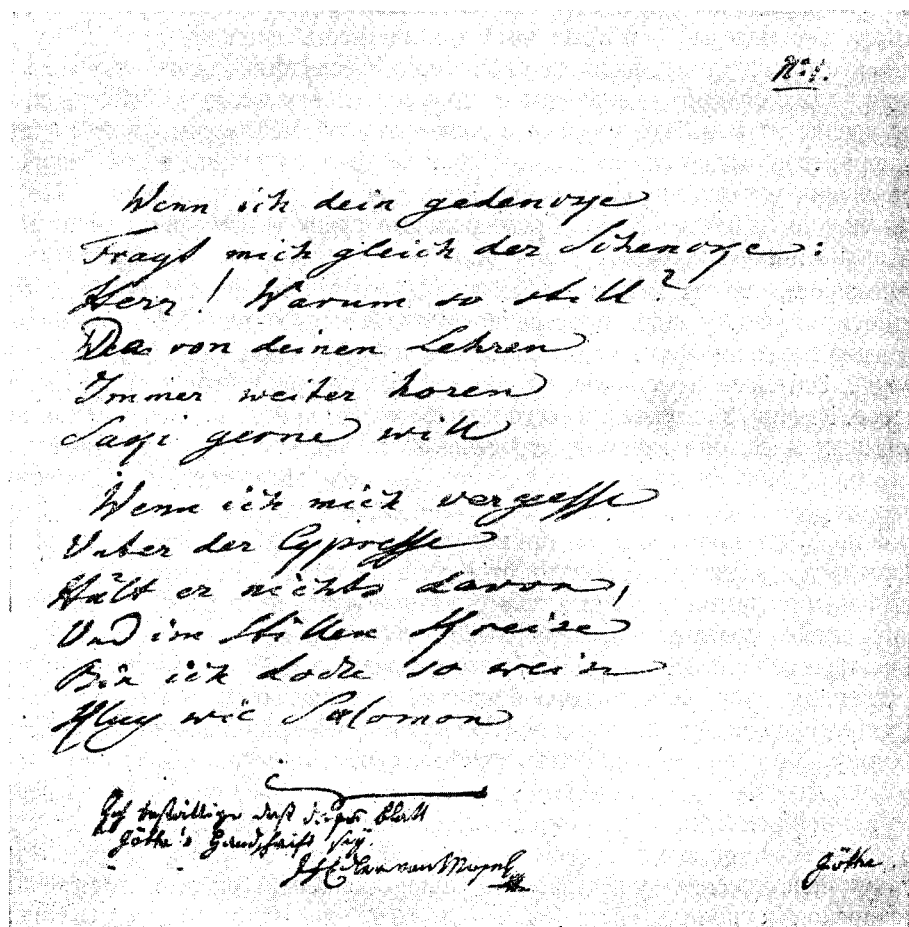 No: 1.
Wenn ich dein gedencke
Fragt mich gleich der Schencke:
Herr! Warum so still?
Da von deinen Lehren
Immer weiter horen
Saqi gerne will
Wenn ich mich vergesse
Unter der Cypresse
Hält er nichts davon,
Und im stillen Kreise
Bin ich doch so weise
Klug wie Salomon
Ich bestättige daß dieses Blatt
Göthe's Handschrift sey.
Edler von
Göthe.